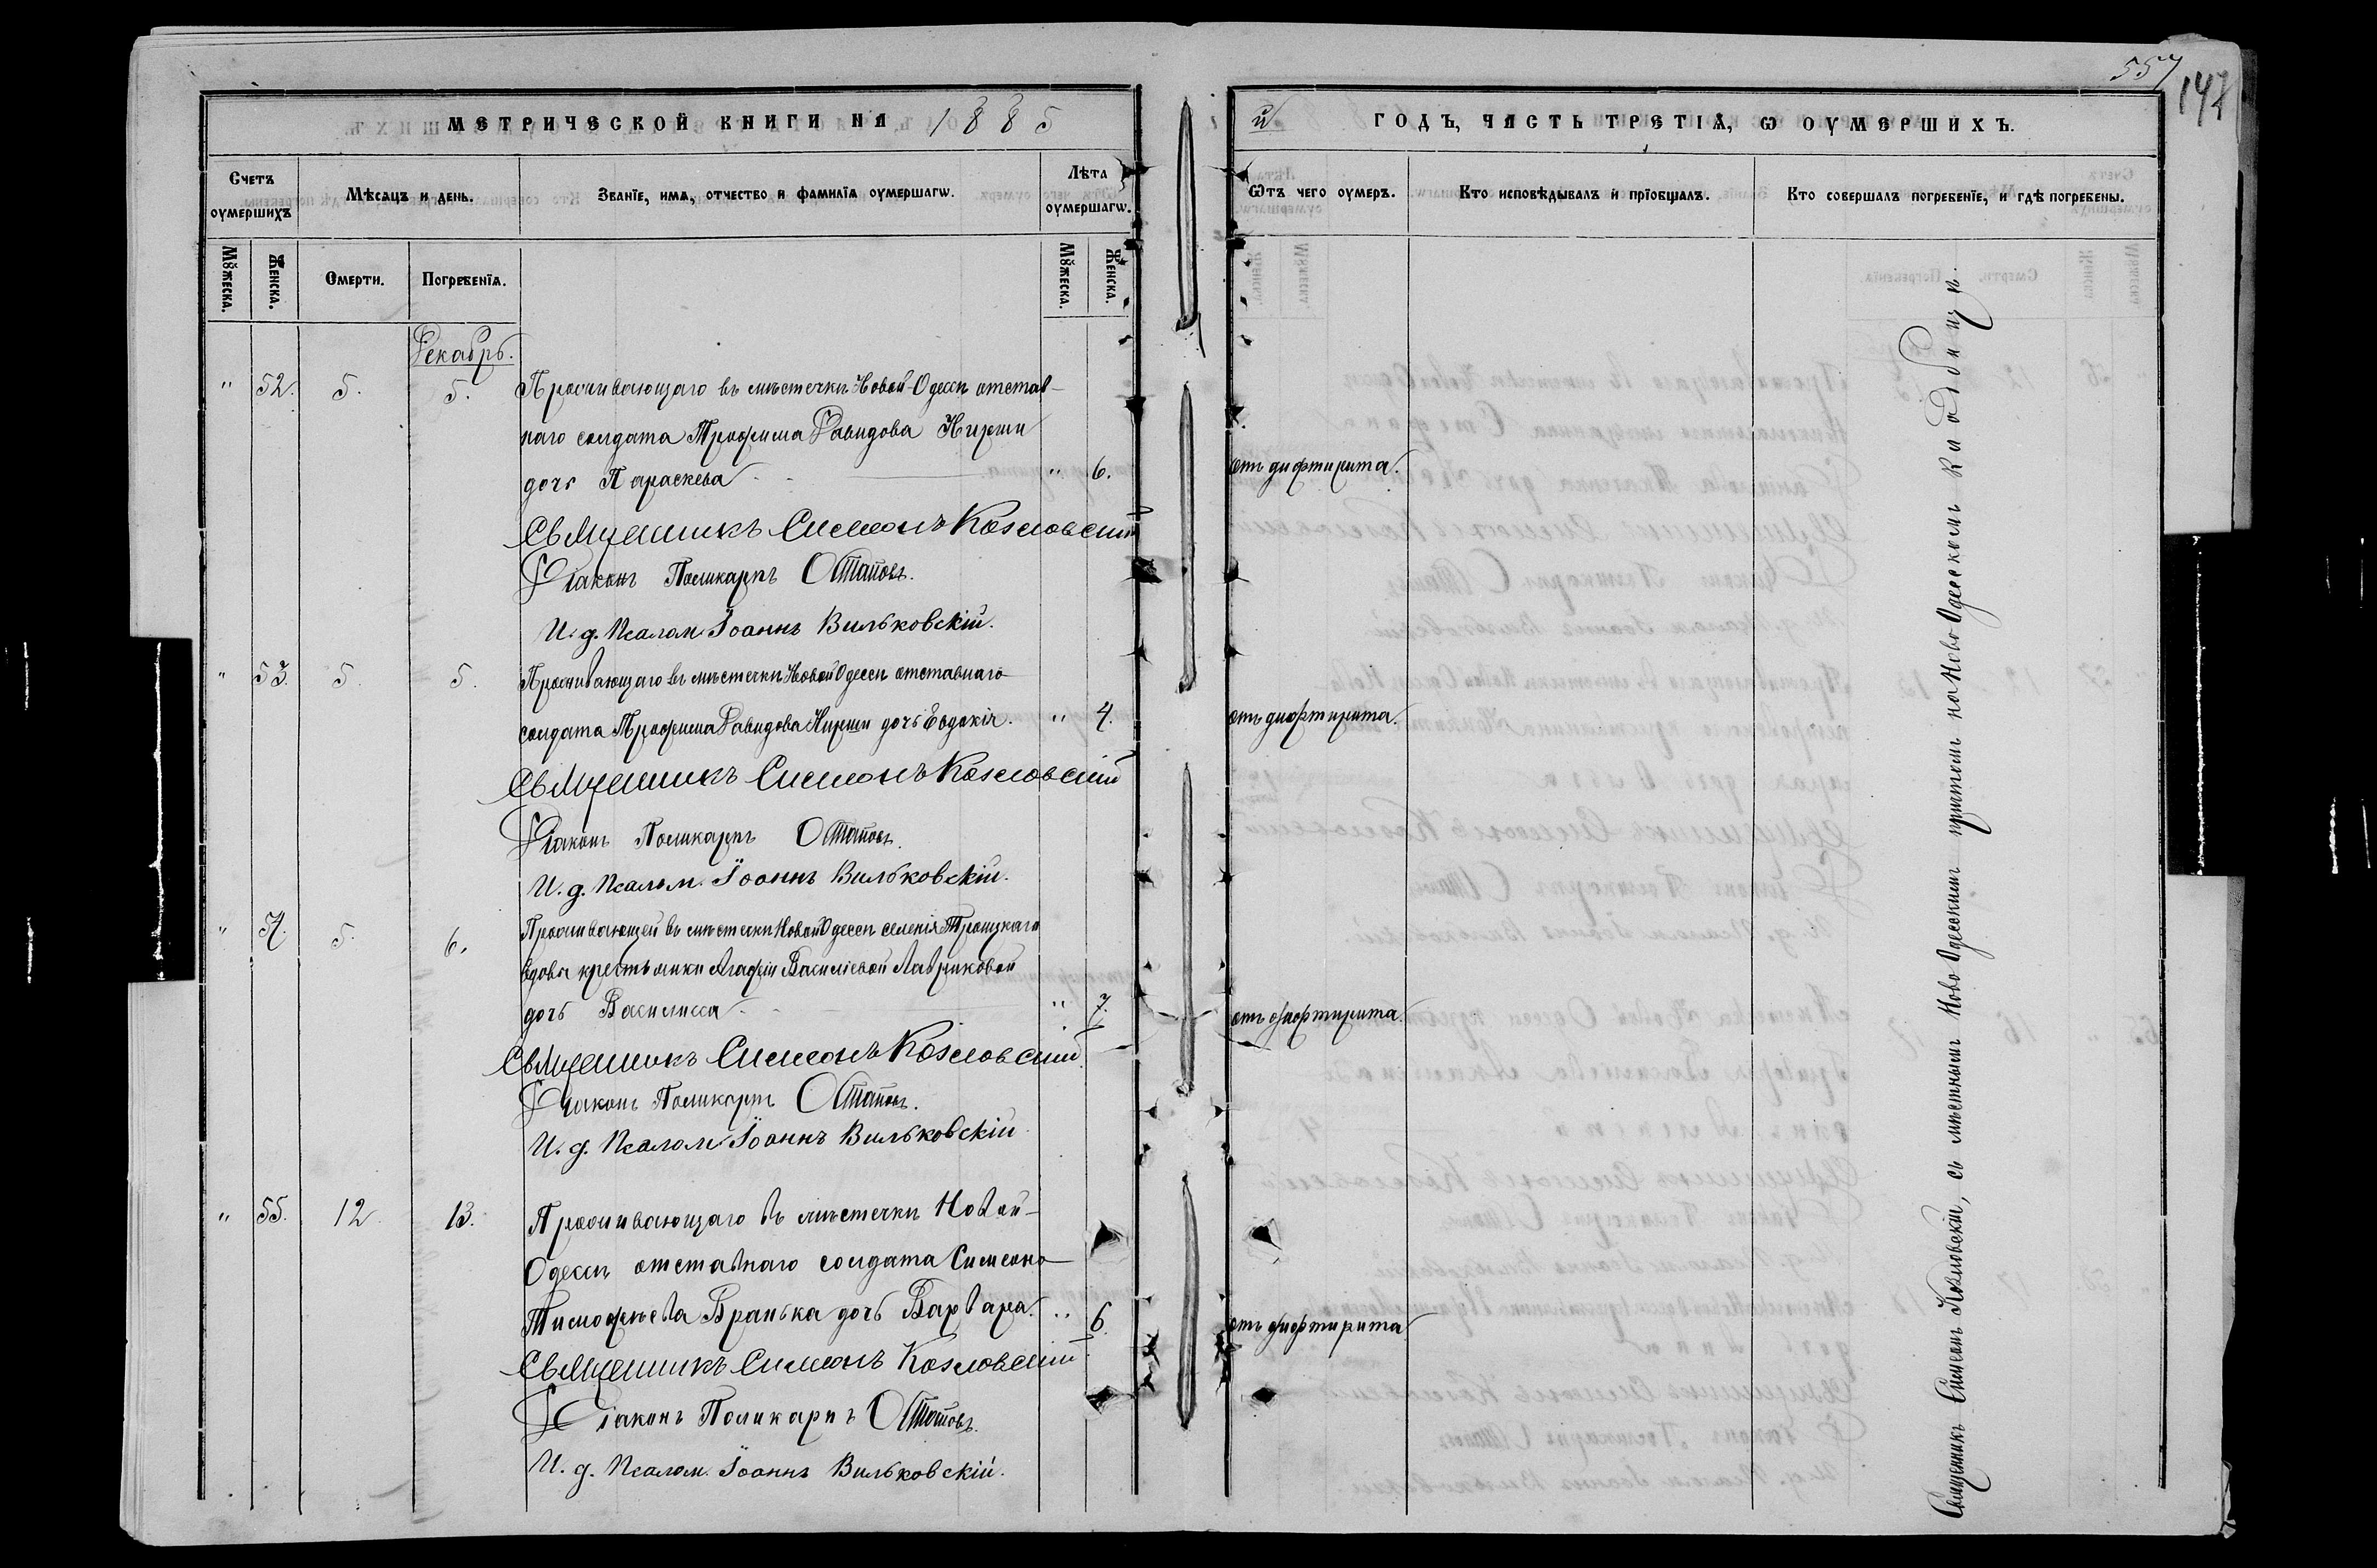 557
147
МЕТРИЧЕСКОЙ КНИГИ НА 1885
й ГОДЪ, ЧАСТЬ ТРЕТІѦ, Ѡ ОУМЕРШИХЪ.
Счетъ оумершихъ
Мѣсѧцъ и день.
Званїе, имѧ, отчество и фамилїѧ оумершагѡ.
Лѣта оумершагѡ.
Ѿтъ чего оумеръ.
Кто исповѣдывалъ и прїобщалъ.
Кто совершалъ погребенїе, и гдѣ погребены.
Мꙋжеска.
Женска.
Смерти.
Погребенїѧ.
Мꙋжеска.
Женска.
Декабрь.
" 52. 5. 5. Проживающаго въ мѣстечкѣ Новой-Одессѣ отстав-
наго солдата Трофима Давидова Кирпи
дочь Параскева " 6. отъ дифтирита.
Священникъ Симеонъ Козловскій
Діаконъ Поликарпъ Остаповъ.
И. д. Псалом. Іоаннъ Вильковскій.
" 53. 5. 5. Проживающаго въ мѣстечкѣ Новой Одессѣ отставнаго
солдата Трофима Давидова Кирпи дочь Евдокія. " 4. отъ дифтирита.
Священникъ Симеонъ Козловскій
Діаконъ Поликарпъ Остаповъ.
И. д. Псалом. Іоаннъ Вильковскій.
" 54. 5. 6. Проживающей въ мѣстечкѣ Новой Одессѣ селенія Троицкаго
вдовы крестьянки Агафіи Василіевой Лавриковой
дочь Василисса " 7. отъ дифтирита.
Священникъ Симеонъ Козловскій
Діаконъ Поликарпъ Остаповъ.
И. д. Псалом. Іоаннъ Вильковскій
" 55. 12. 13. Проживающаго въ мѣстечкѣ Новой-
Одессѣ отставнаго солдата Симеона
Тимофѣева Вранька дочь Варвара. " 6. отъ дифтирита
Священникъ Симеонъ Козловскій
Діаконъ Поликарпъ Остаповъ.
И. д. Псалом. Іоаннъ Вильковскій.
Священникъ Симеонъ Козловскій, съ мѣстнымъ Ново Одесскимъ причтомъ на Ново Одесскомъ кладбищѣ.